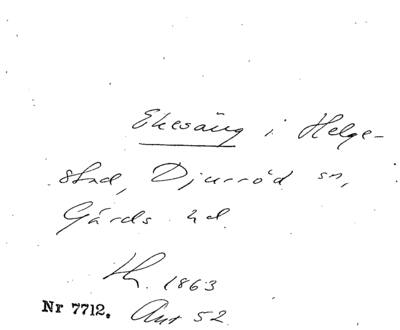 Ekesäng i Helge-
stad, Djurröd sn,
Gärds hd.
Th. 1863
Nr 7712. Ant 52